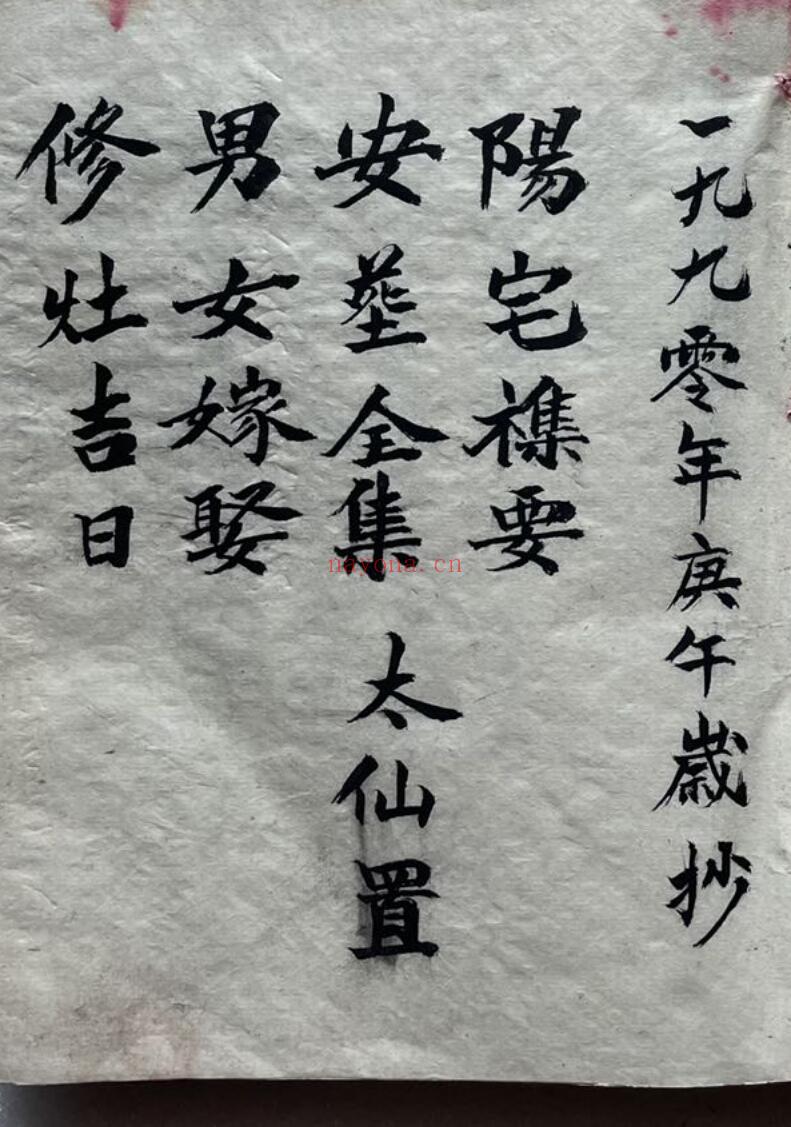 一九九零年庚午歲抄
陽宅襍要
安塟全集 太仙置
男女嫁娶
修灶吉日
nayona.cn